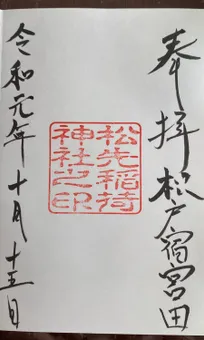 奉拝 杉戸宿宮田
松先稲荷
神社之印
令和元年十月十三日